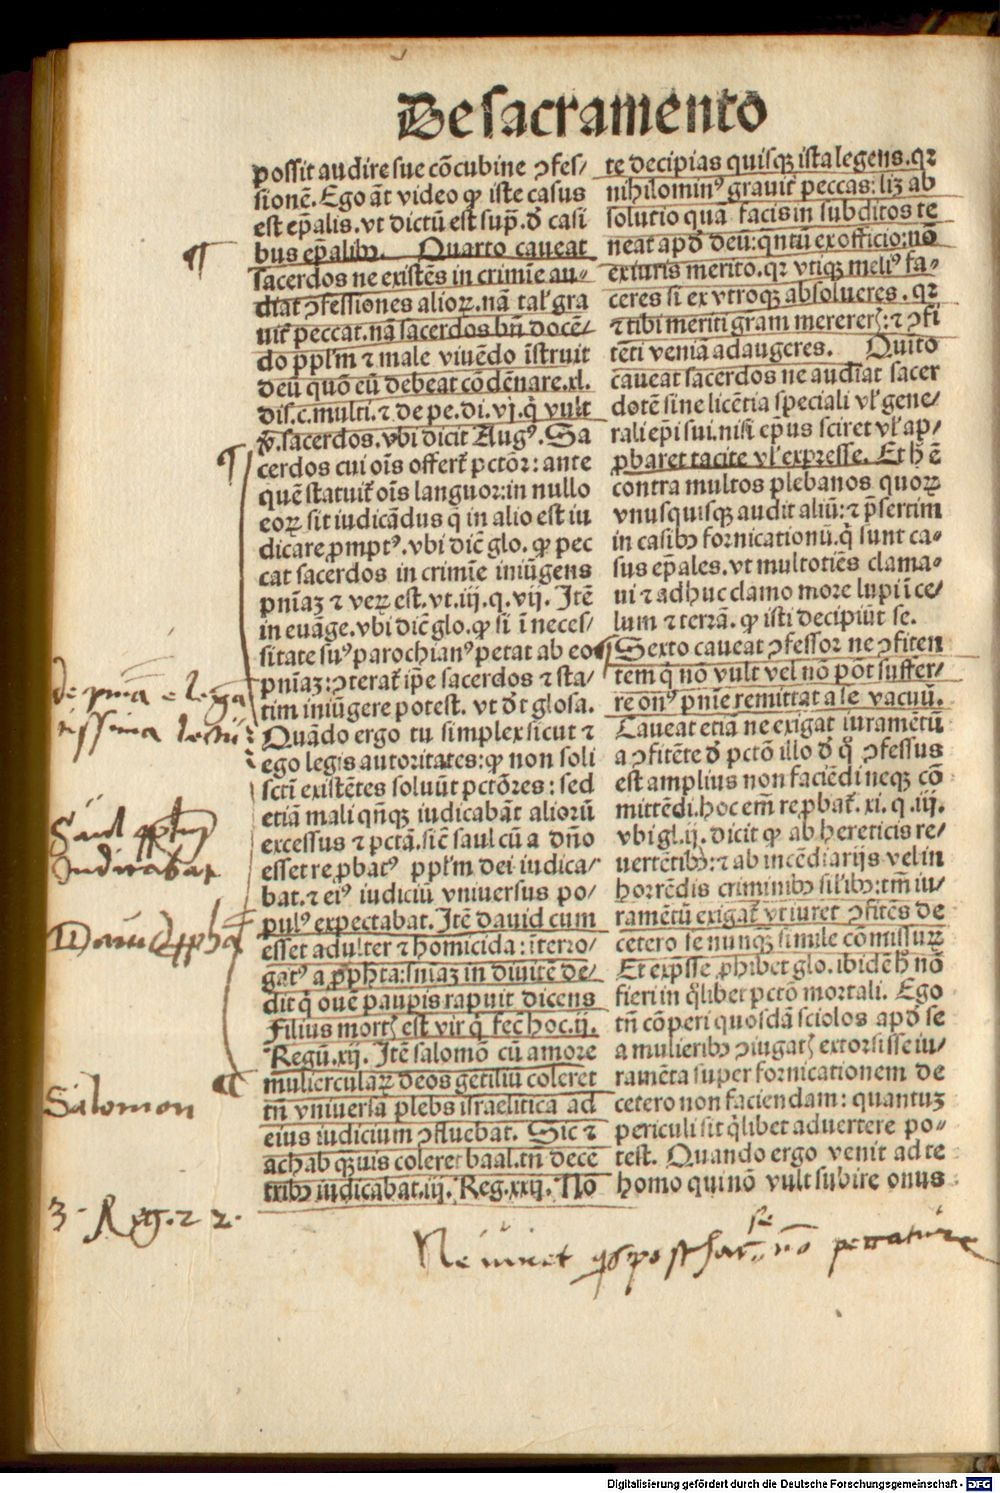 De sacramento
possit audire sue cõcubine ꝯfes/
sionẽ. Ego ãt video ꝙ iste casus
est ep̃alis. vt dictũ est sup̃. đ casi
bus ep̃alibꝫ. Quarto caueat
sacerdos ne existẽs in crimĩe au⸗
diat ꝯfessiones alioꝝ. nã tal̃ gra
uit̃ peccat. nã sacerdos bñ docẽ/
do pp̃lm ⁊ male viuẽdo ĩstruit
deũ quõ eũ debeat cõdẽnare. xl.
dis. c. multi. ⁊ de pe. di. vj. q̇ vult
sacerdos. vbi dicit Augꝰ. Sa
cerdos cui oĩs offert̃ pctõꝛ: ante
quẽ statuit̃ oĩs languoꝛ: in nullo
eoꝝ sit iudicãdus q̇ in alio est iu
dicare ꝓmptꝰ. vbi dicẽ glo. ꝙ pec
cat sacerdos in crimĩe iniũgens
pñiaꝫ ⁊ veꝝ est. vt. iij. q. vij. Itẽ
in euãge. vbi dicẽ glo. ꝙ si ĩ neces/
sitate suꝰ parochianꝰ petat ab eo
pñiaꝫ: ꝯterat̃ ip̃e sacerdos ⁊ sta/
tim iniũgere potest. vt đt glosa.
Quãdo ergo tu simplex sicut ⁊
ego legis autoritates: ꝙ non soli
scti existẽtes soluũt pctõꝛes: sed
etiã mali qñqꝫ iudicabãt alioꝛũ
excessus ⁊ pctã. sic̃ saul cũ a dño
esset reꝓbatꝰ pp̃lm dei iudica/
bat. ⁊ eiꝰ iudiciũ vniuersus po/
pulꝰ expectabat. Itẽ dauid cum
esset adulter ⁊ homicida: ĩterro/
gatꝰ a ꝓpħta: sñiaꝫ in diuitẽ de/
dit q̇ ouẽ paupis rapuit dicens
Filius mortꝭ est vir q̇ fec̃ hoc. ij.
Regũ. xij. Itẽ salomõ cũ amore
mulierculaꝝ deos gẽtiliũ coleret
tñ vniuersa plebs israelitica ad
eius iudicium ꝯfluebat. Sic ⁊
achab qꝫuis coleret baal. tñ decẽ
tribꝫ iudicabat. iij. Reg. xxij. No
te decipias quisqꝫ ista legens. qꝛ
nihilominꝰ grauit̃ peccas: lꝫ ab
solutio quã facis in subditos te
neat apđ deũ: q̃ntũ ex officio: nõ
ex iuris merito. qꝛ vtiqꝫ meliꝰ fa⸗
ceres si ex vtroqꝫ absolueres. qꝛ
⁊ tibi meriti gram merererꝭ: ⁊ ꝯfi
tẽti veniã adaugeres. Quĩto
caueat sacerdos ne audiat sacer
dotẽ sine licẽtia speciali vl̃ gene/
rali ep̃i sui. nisi ep̃us sciret vl̃ ap/
ꝓbaret tacite vl̃ exp̃resse. Et ħ ẽ
contra multos plebanos quoꝝ
vnusquisqꝫ audit aliũ: ⁊ p̃sertim
in casibꝫ fornicationũ. q̇ sunt ca⸗
sus ep̃ales. vt multotiẽs clama⸗
ui ⁊ adhuc clamo more lupi ĩ ce/
lum ⁊ terrã. ꝙ isti decipiũt se.
Sexto caueat ꝯfessor ne ꝯfiten
tem q̇ nõ vult vel nõ põt suffer⸗
re onꝰ pñie remittat a se vacuũ.
Caueat etiã ne exigat iuramẽtũ
a ꝯfitẽte đ pctõ illo đ q̊ ꝯfessus
est amplius non faciẽdi neqꝫ cõ
mittẽdi. hoc em̃ reꝓbat̃. xi. q. iij.
vbi gl. ij. dicit ꝙ ab hereticis re/
uertẽtibꝫ: ⁊ ab incẽdiarijs vel in
horrẽdis criminibꝫ sil̃ibꝫ: tm̃ iu/
ramẽtũ exigat̃ vt iuret ꝯfitẽs de
cetero se nunqꝫ simile cõmissuꝝ
Et exp̃sse ꝓhibet glo. ibidẽ ħ nõ
fieri in q̊libet pctõ mortali. Ego
tñ cõperi quosdã sciolos apđ se
a mulieribꝫ ꝯiugatꝭ extorsisse iu/
ramẽta super fornicationem de
cetero non faciendam: quantuꝫ
periculi sit q̊libet aduertere po⸗
test. Quando ergo venit ad te
homo qui nõ vult subire onus
de pñia e lega
tissima lectu
Saul pp̃lm
Iudicabat
Dauid ꝓpha
Salomon
3. Reg. 22.
Ne iuret post hac se nõ peccature